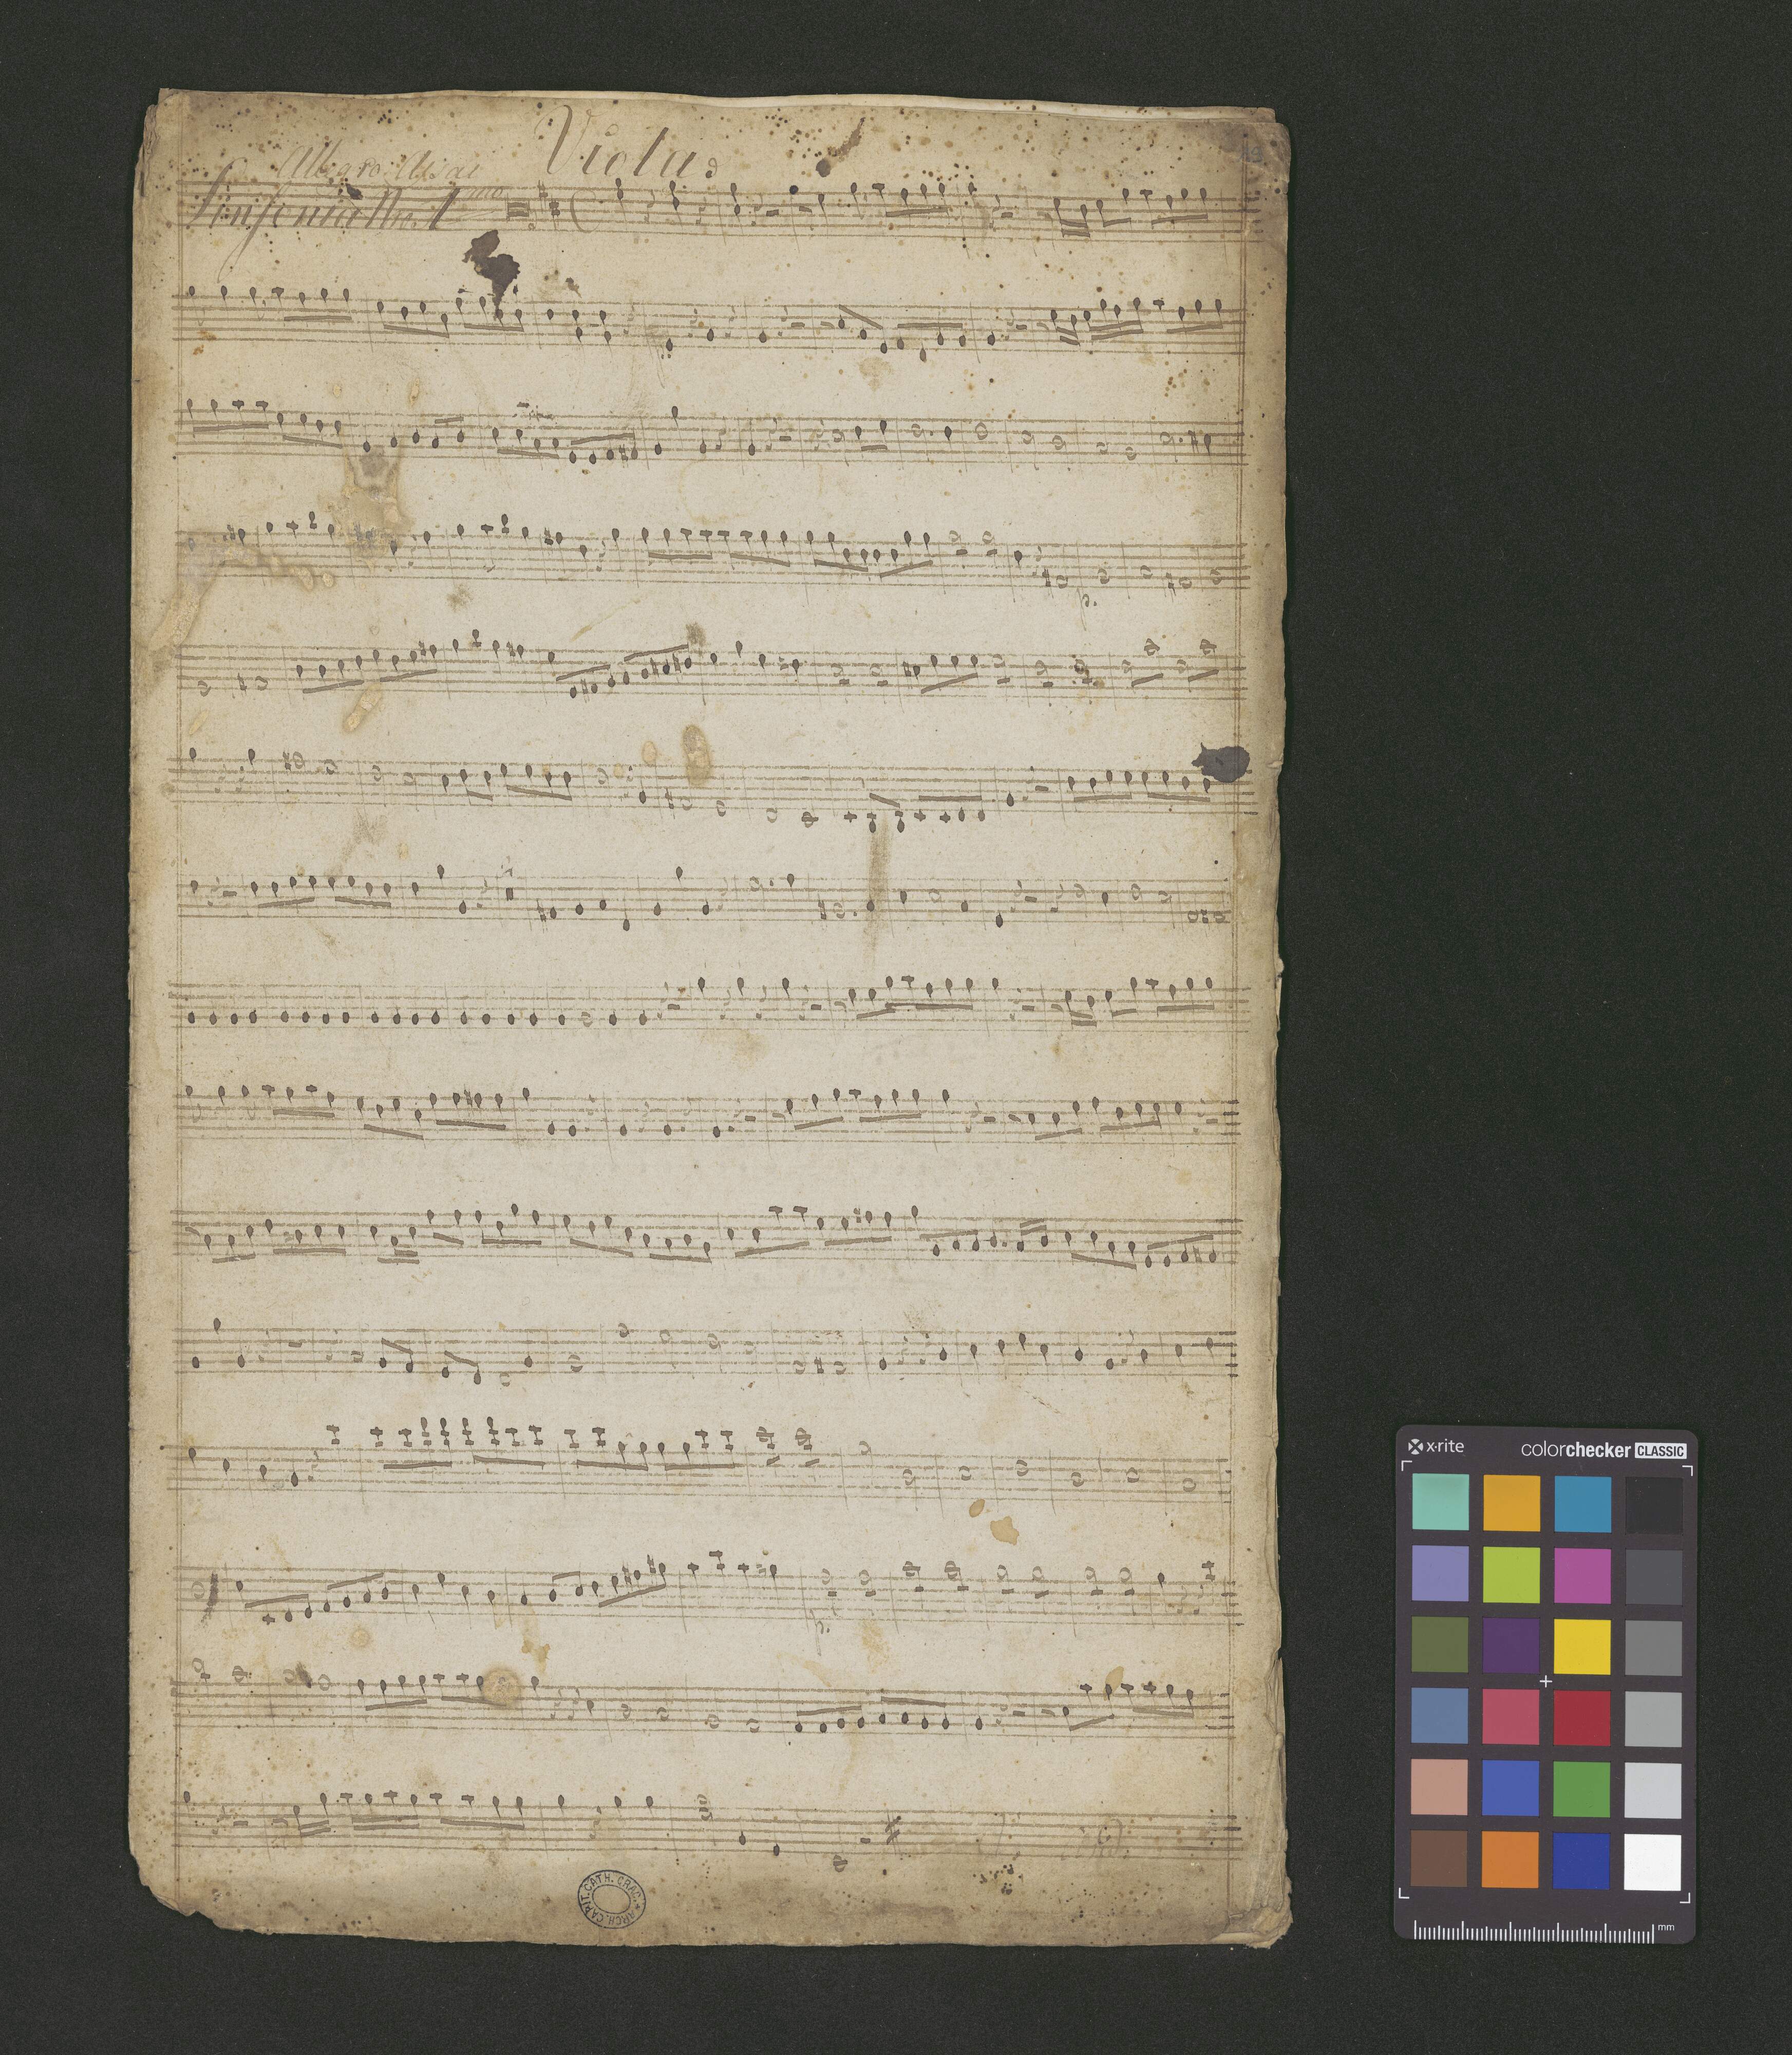 Viola
Allegro Assai
Sinfonia Nro. 1mo
p.
p.
p.
ARCH. CAPIT. CATH. CRAC.
x-rite
colorchecker CLASSIC
mm